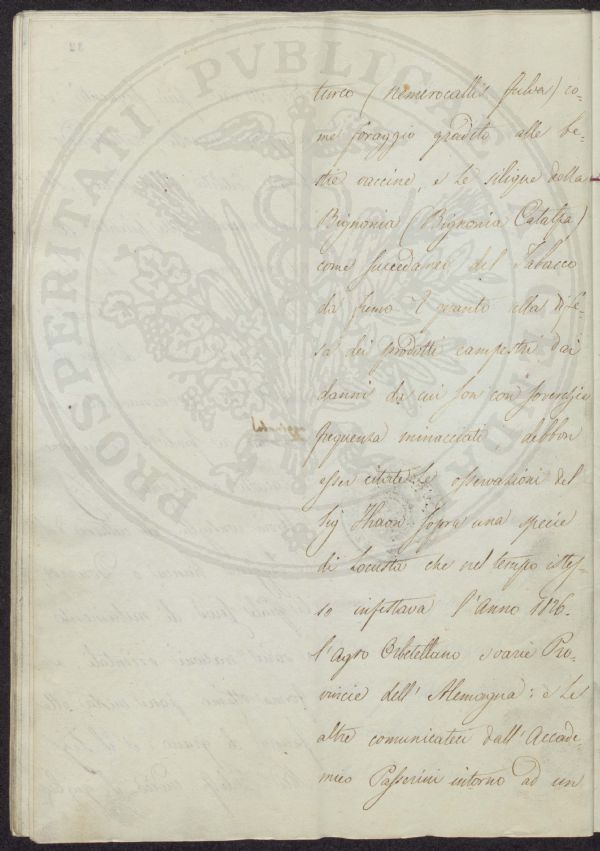 turco (Hemerocallis fulva) co-
me foraggio gradito alle be-
stie vaccine, e le silique della
Bignonia (Bignonia Catalpa)
come succedaneo del Tabacco
da fumo. E quanto alla dife-
sa dei prodotti campestri dai
danni da cui son con soverchia
frequenza minacciati, debbon
esser citate le osservazioni del
Sig. Thaon sopra una specie
di Locusta che nel tempo istes-
so infestava l'Anno 1826.
l'agro Orbetellano e varie Pro-
vincie dell'Alemagna: e le
altre comunicateci dall'Accade-
mico Passerini intorno ad un
PROSPERITATI PUBLICAE